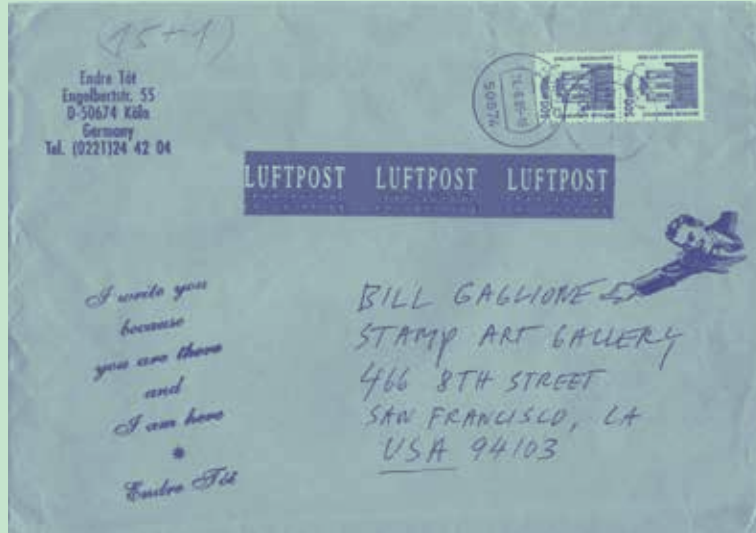 (15+1)
Endre Tót
Engelbertstr. 55
D-50674 Köln
Germany
Tel. (0221)24 42 04
50674
LUFTPOST LUFTPOST LUFTPOST
I write you
because
you are there
and
I am here
*
Endre Tót
BILL GAGLIONE
STAMP ART GALLERY
466 8TH STREET
SAN FRANCISCO, CA
USA 94103